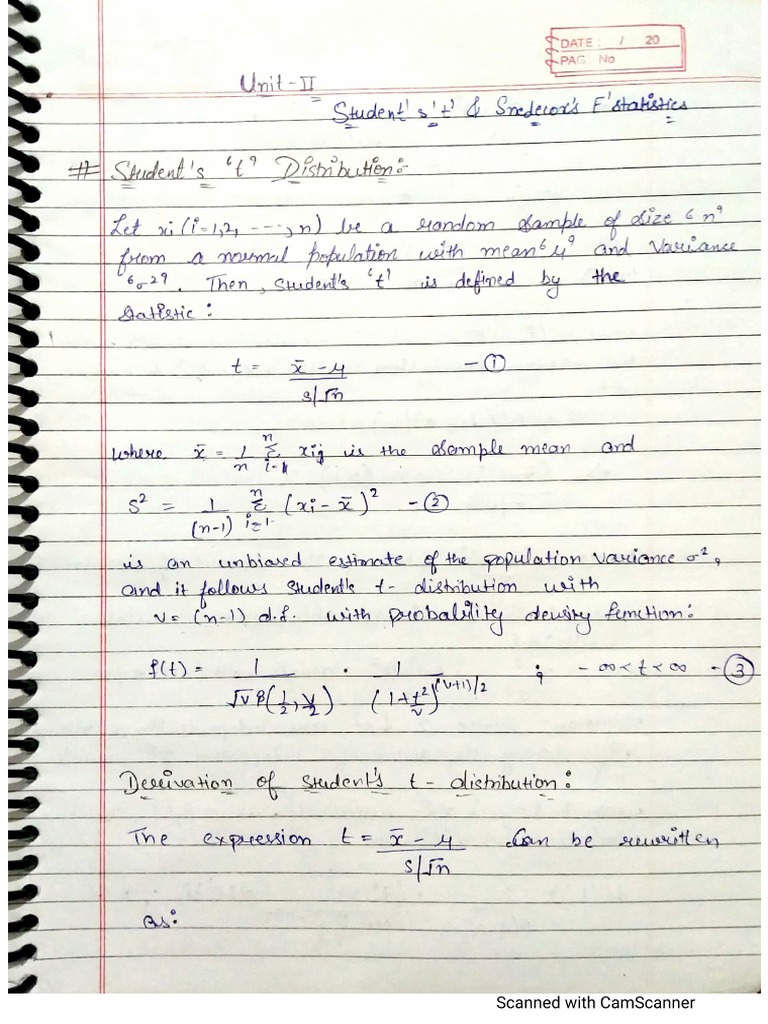 DATE: / 20
PAG No
Unit-II
Student's 't' & Snedecor's F'statistics
# Student's 't' Distribution:-
Let xi (i=1,2, ---, n) be a random sample of size 'n'
from a normal population with mean 'μ' and variance
'σ2'. Then, Student's 't' is defined by the
statistic:
t = x̄ - μ / s/√n - ①
where x̄ = 1/n Σ(i=1 to n) xi; is the sample mean and
S² = 1/(n-1) Σ(i=1 to n) (xi - x̄)² - ②
is an unbiased estimate of the population variance σ²,
and it follows Student's t- distribution with
ν = (n-1) d.f. with probability density function:
f(t) = 1/√ν β(1/2, ν/2) . 1/(1+t²/ν)^(ν+1)/2 ; -∞<t<∞ - ③
Derivation of Student's t- distribution:
The expression t = x̄ - μ / s/√n can be rewritten
as:
Scanned with CamScanner